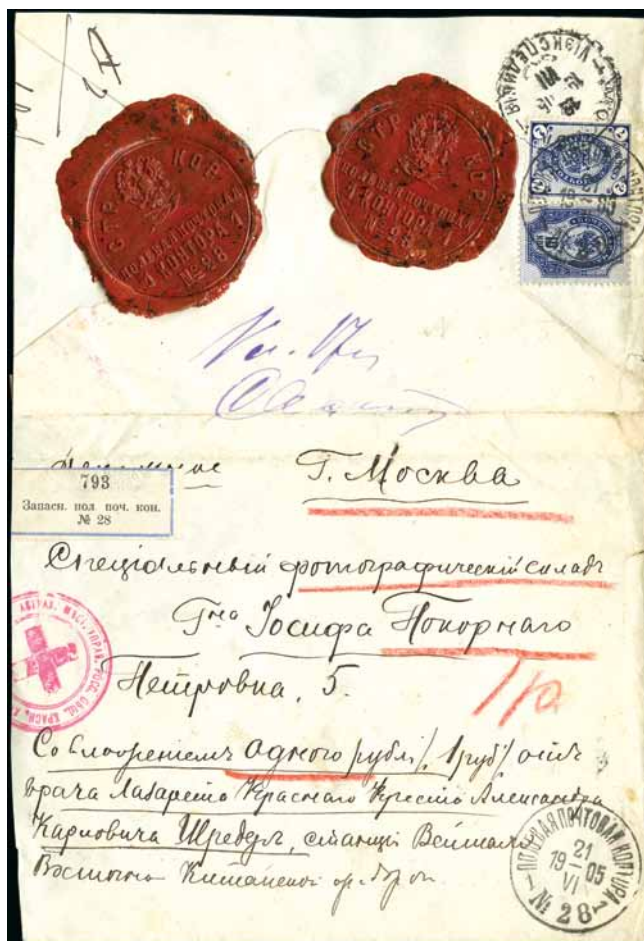 СТР. КОР.
ПОЛЕВАЯ ПОЧТОВАЯ
КОНТОРА 1
№ 28
СТР. КОР.
ПОЛЕВАЯ ПОЧТОВАЯ
КОНТОРА 1
№ 28
7
7
793
Запасн. пол. поч. кон.
№ 28
Г. Москва
Спеціальный фотографическій складъ
Гна Іосифа Покорнаго
Петровка, 5.
1 р.
Со вложеніемъ одного рубля /1 руб/ отъ
врача Лазарета Краснаго Креста Александра
Карловича Шредеръ, станція
Восточно Китайской
ПОЛЕВАЯ ПОЧТОВАЯ КОНТОРА 1
21
VI
19 05
№ 28